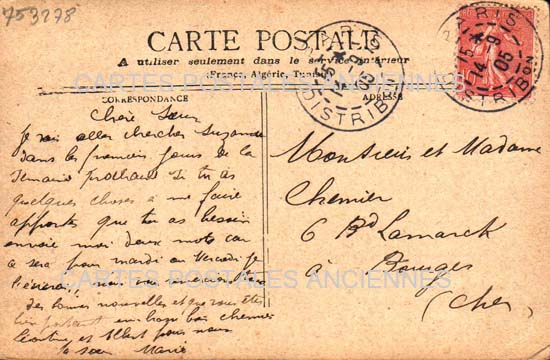 753278
CARTE POSTALE
A utiliser seulement dans le service intérieur
(France, Algérie, Tunisie)
CORRESPONDANCE
ADRESSE
PARIS
DISTRIBON
PARIS
DISTRIBON
CARTES POSTALES ANCIENNES
Chère Sœur
Je vais aller chercher Suzanne
dans les premiers jours de la
semaine prochaine si tu as
quelques choses à me faire
apporter que tu as besoin
envoie moi deux mots car
ce sera pour mardi ou Mercredi je
des bonnes nouvelles et que vous êtes
bien portant
et Albert pour nous
ta sœur Marie
Monsieur et Madame
Chemier
6 Bd Lamarck
à Bourges
(Cher)
CARTES POSTALES ANCIENNES